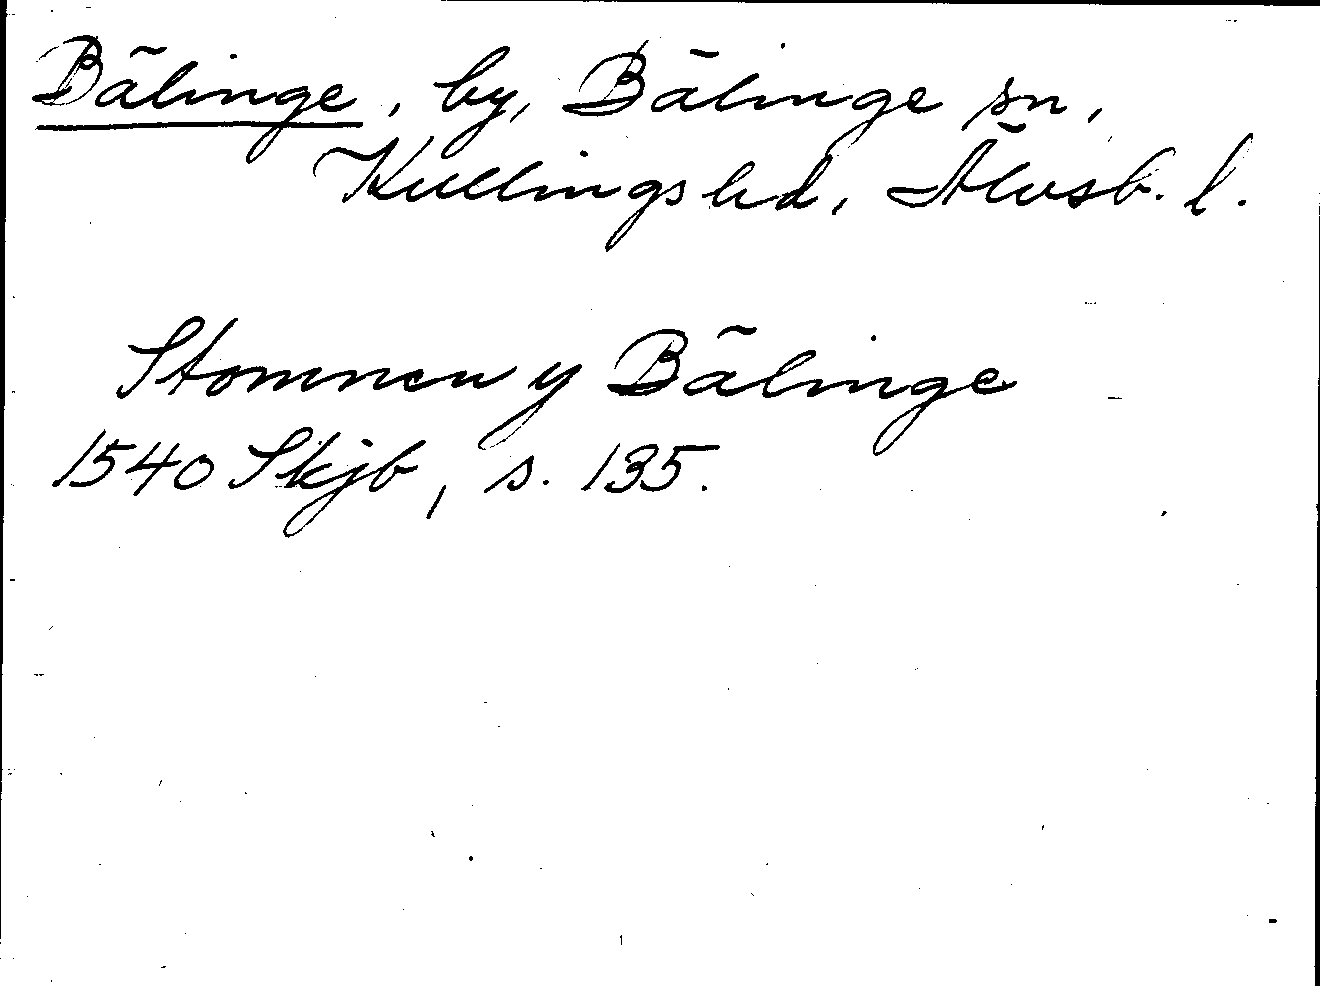 Bälinge, by, Bälinge sn,
Kullings hd, Älvsb. l.
Stommen y Bälinge
1540 Skjb, s. 135.